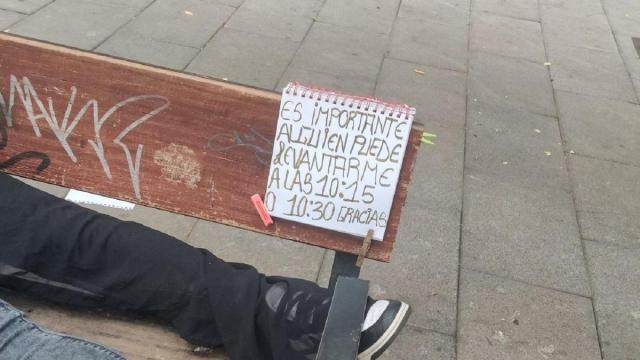 ES IMPORTANTE
ALGUIEN PUEDE
LEVANTARME
A LAS 10:15
O 10:30 GRACIAS